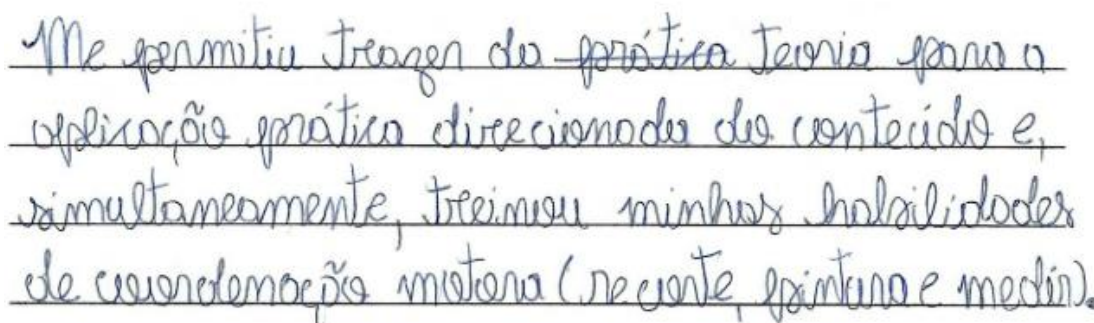 Me permitiu trazer da prática teoria para a
aplicação prática direcionada do conteúdo e,
simultaneamente, treinou minhas habilidades
de coordenação motora (recorte, pintura e medir).